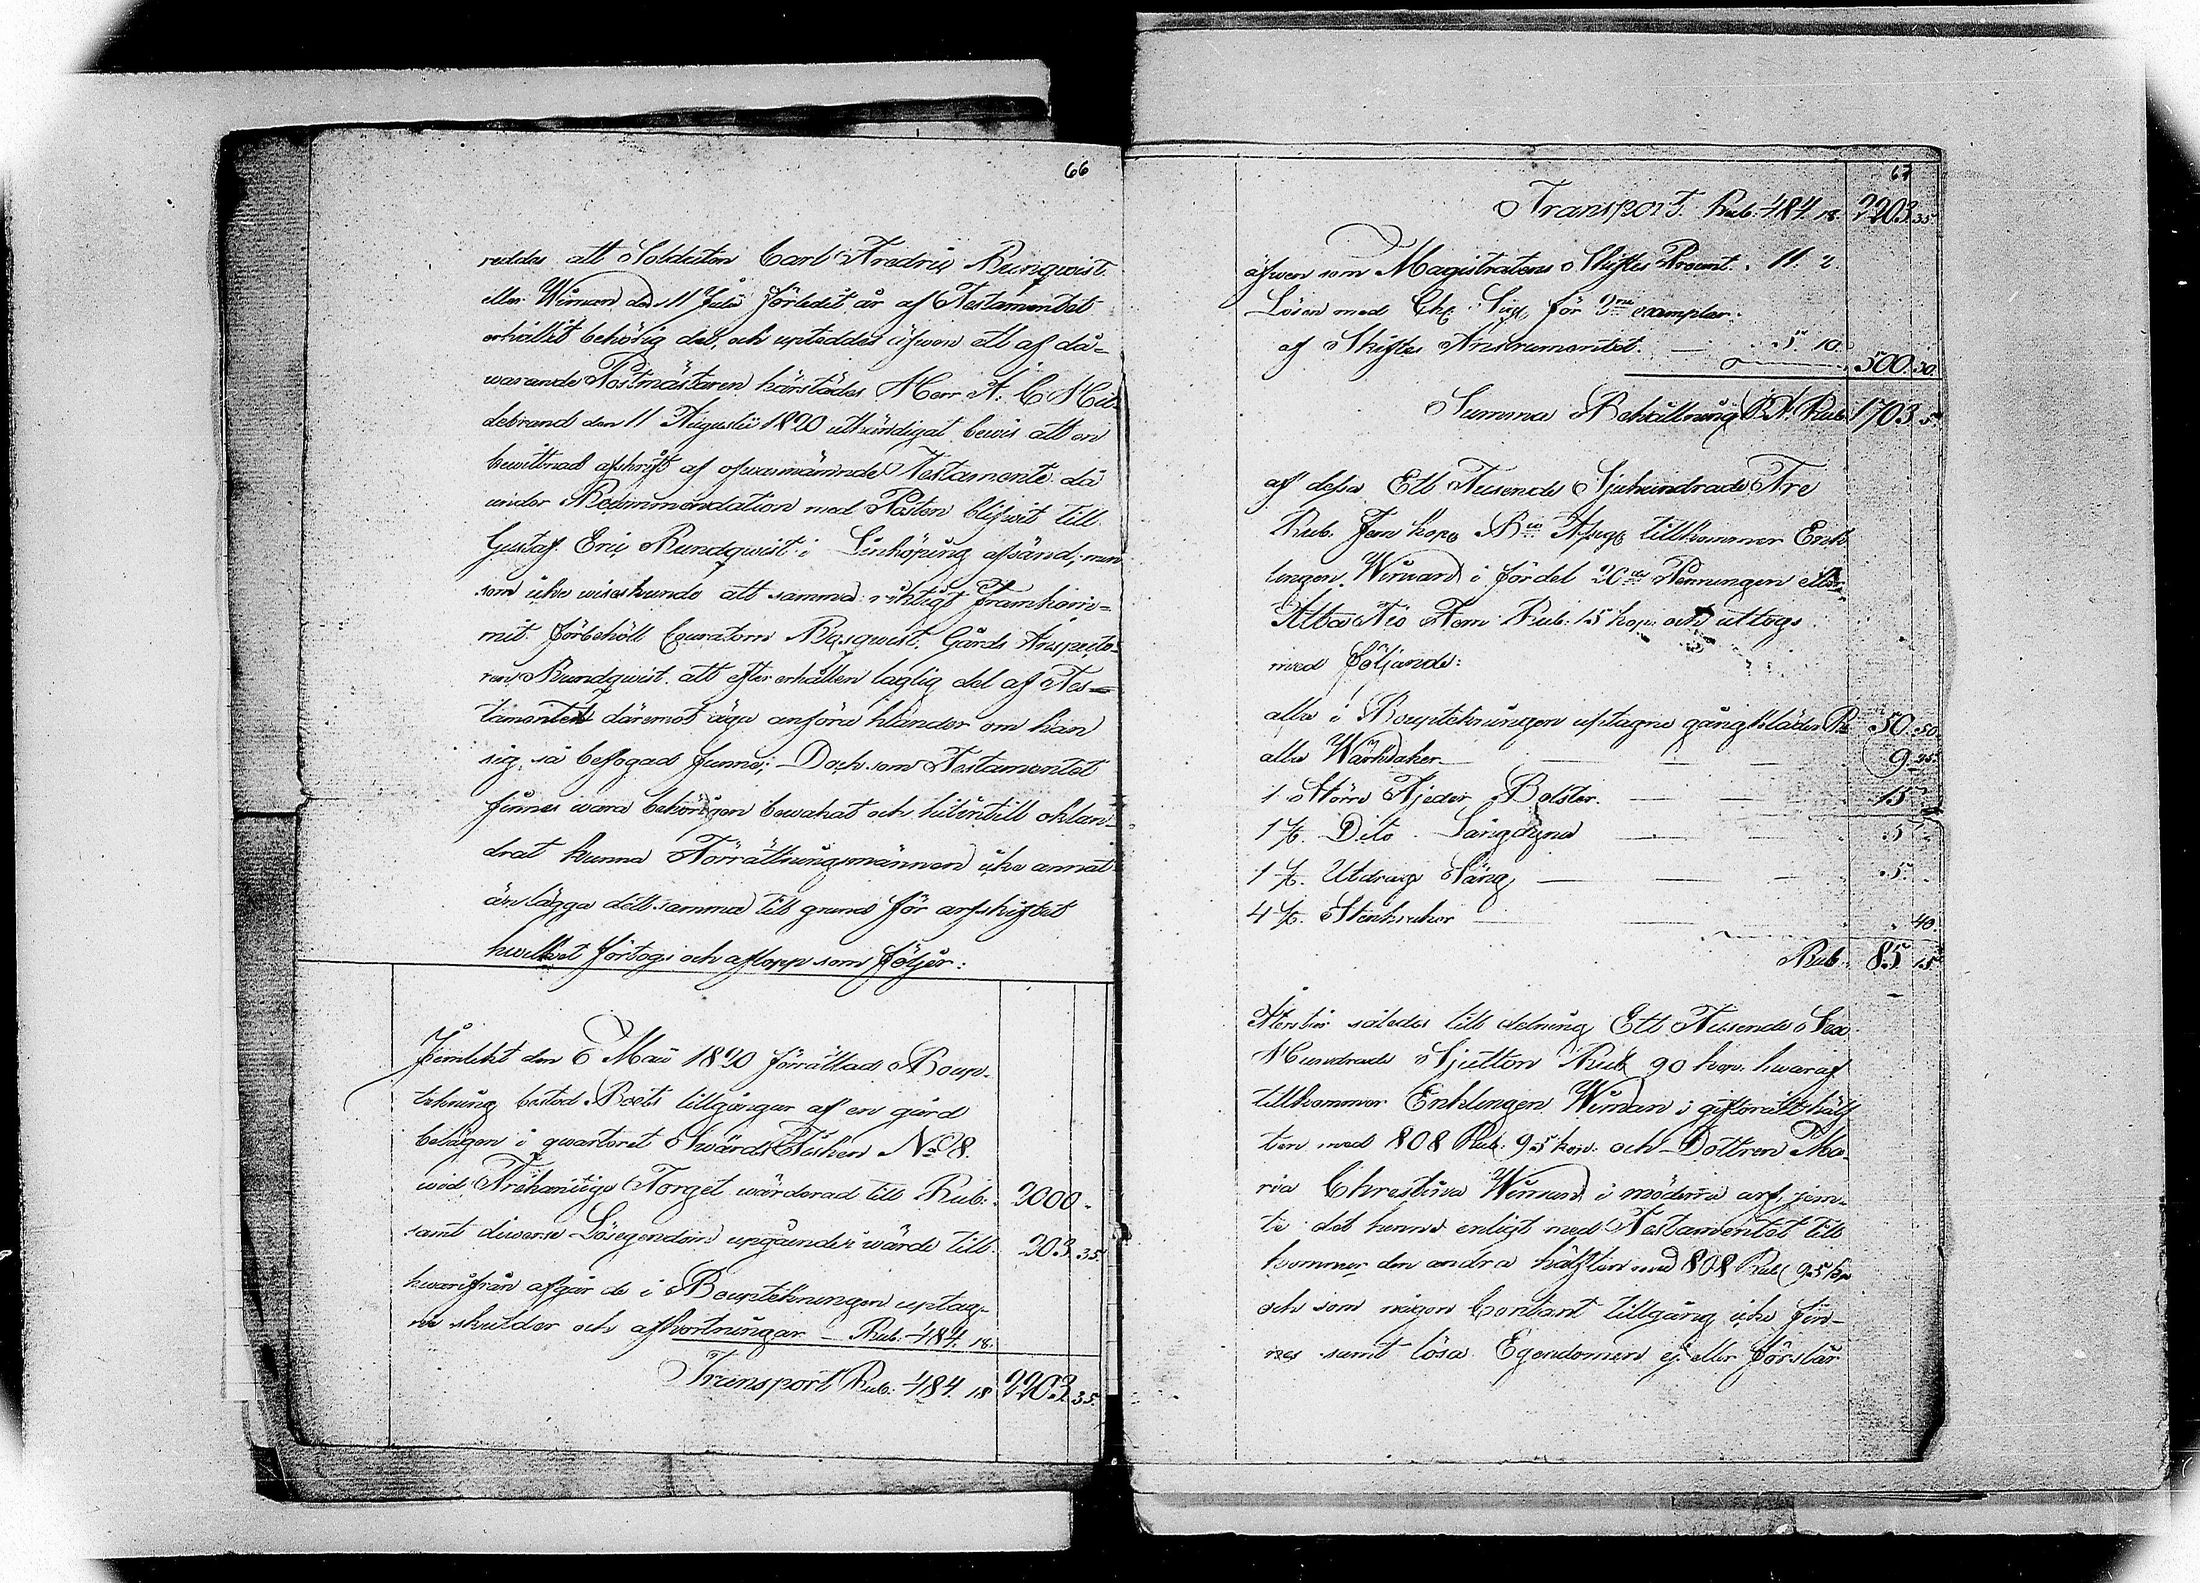 66
reddes att Soldaten Carl Fredric Runqvist
eller Wiman den 11 Julii förledit år af Testamentet
erhållit behörig del, och upteddes äfwen ett af då-
warande Postmästaren härstädes Herr A. C. Hil-
debrand den 11 Augustii 1820 utfärdigat bewis att en
bewittnad afskrift af ofwannämnde Testamente då
under Recommendation med Posten blifwit till
Gustaf Eric Rundqwist i Linköping afsänd; men
som icke wiserkunde att samma riktigt framkom-
mit förbehölt Curatorn Gårds Inspecto-
ren Rundqwist att efter erhållen laglig del af Tes-
tamentet däremot äga anföra klander om han
sig så befogad funne; Doch som Testamentet
finnes wara behörigen bewakat och hitintill oklan-
drat kunna Förrättningsmännen icke annat
än lägga dett samma till grund för arfskiftet
hwilket förtogs och aflopp som följer:
Jemlikt den 6 Maii 1820 förrättad Boup-
tekning bestod Boets tillgångar af en gård
belägen i qwarteret Swärd Fisken No 8.
wid Trekantige Torget wärderad till Rub. 2000.
samt diwerse Lösegendom upgående i wärde till 203. 35.
hwarifrån afgår de i Bouptekningen uptag-
ne skulder och afkortningar — Rub. 484. 18.
Transport Rub. 484. 18 2203. 35.
67
Transport. Rub. 484. 18. 2203. 35
äfwen som Magistratens Skiftes Procent. 11. 2.
Lösen med Chf. Sigl. för 2ne exemplar
af Skiftes Instrumentet. — 5. 10. 500. 30
Summa Behållning B. A. Rub. 1703. 5.
af dessa Ett Tusende Sjuhundrade Tre
Rub. Fem kop. Bco Assigt tillkommer Enk-
lingen Wiman i fördel 20de Penningen eller
Åtta Tio Fem Rub. 15 kop. och uttogs
med följande:
alla i Bouptekningen uptagne gångkläder Rb 50. 50
alla Wärksaker — 9. 25
1 Större Fjeder Bolster. — 15
1 st. Dito Sängdyna — 5
1 st. Utdrag Säng — 5.
4 st. Stenkrukor — 40.
Rub. 85. 15
Återstår således till delning Ett Tusende Sex
Hundrade Sjutton Rub. 90 kop. hwaraf
tillkommer Enklingen Wiman i giftorätt hälf-
ten med 808 Rub. 95 kop. och Dottren Ma-
ria Christina Wiman i möderne arf jem-
te det henne enligt med Testamentet till
kommer den andra hälften med 808 Rub. 95 kop
och som någon Contant tillgång icke fin-
nes samt lösa Egendomen ej eller förslår